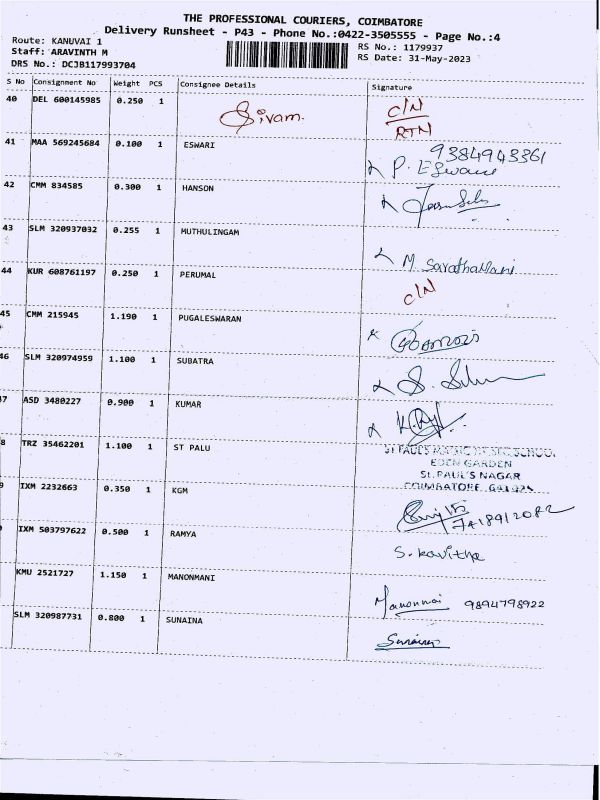 THE PROFESSIONAL COURIERS, COIMBATORE
Delivery Runsheet - P43 - Phone No.:0422-3505555 - Page No.:4
Route: KANUVAI 1
Staff: ARAVINTH M
DRS No.: DCJB117993704
RS No.: 1179937
RS Date: 31-May-2023
S No Consignment No Weight PCS Consignee Details Signature
40 DEL 600145985 0.250 1 Sivam. C/N
RTN
41 MAA 569245684 0.100 1 ESWARI 9384943361
P. Eswari
42 CMM 834585 0.300 1 HANSON
43 SLM 320937032 0.255 1 MUTHULINGAM
M. Sarathamani
44 KUR 608761197 0.250 1 PERUMAL C/N
45 CMM 215945 1.190 1 PUGALESWARAN
46 SLM 320974959 1.100 1 SUBATRA
7 ASD 3480227 0.900 1 KUMAR
8 TRZ 35462201 1.100 1 ST PALU
EDEN GARDEN
St. PAUL'S NAGAR
COIMBATORE
9 IXM 2232663 0.350 1 KGM
IXM 503797622 0.500 1 RAMYA S. Kavitha
KMU 2521727 1.150 1 MANONMANI
Manonmai 9894798922
SLM 320987731 0.800 1 SUNAINA
Sunaina